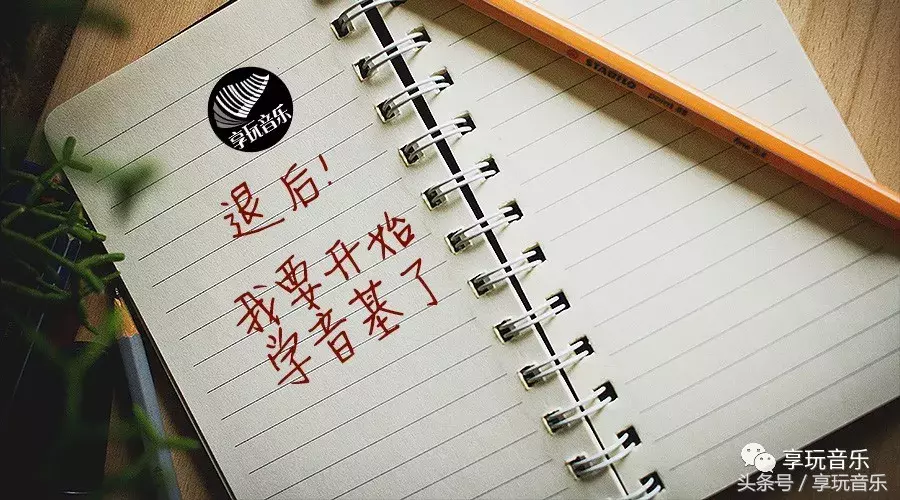 享玩音乐
退后!
我要开始
学音基了
STABILO point 88
fine 0.4
享玩音乐
头条号 / 享玩音乐